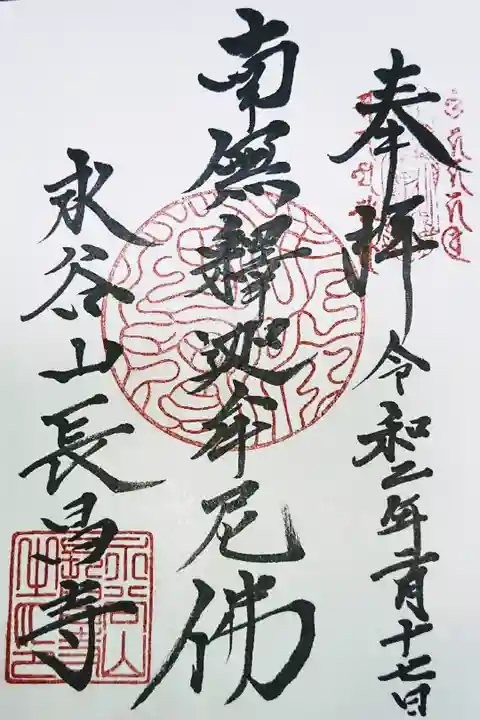 奉拝 令和二年二月十七日
南無釋迦牟尼佛
永谷山長昌寺